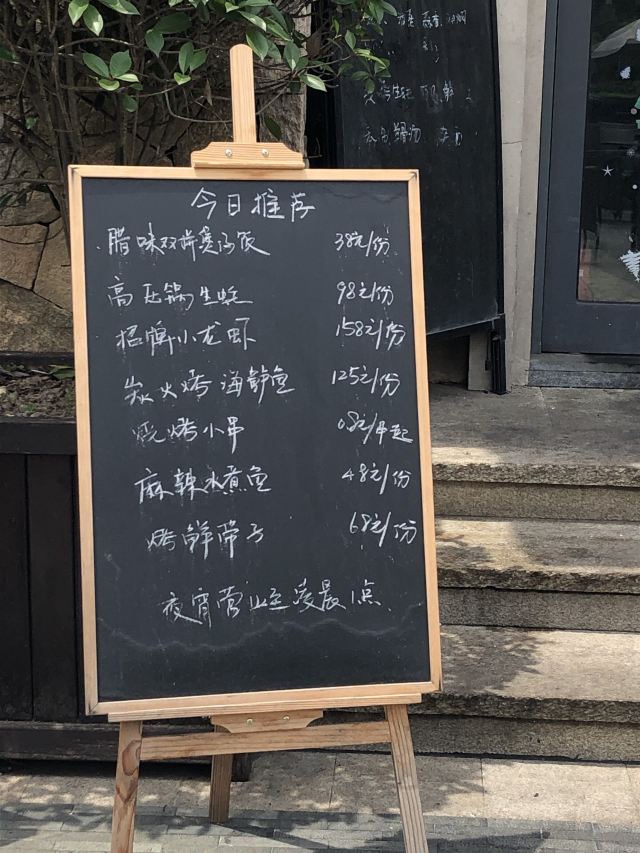 今日推荐
腊味双拼煲仔饭 38元/份
高压锅生蚝 98元/份
招牌小龙虾 158元/份
炭火烤海鲈鱼 125元/份
烧烤小串 08元/串起
麻辣水煮鱼 48元/份
烤鲜带子 68元/份
夜宵营业至凌晨1点